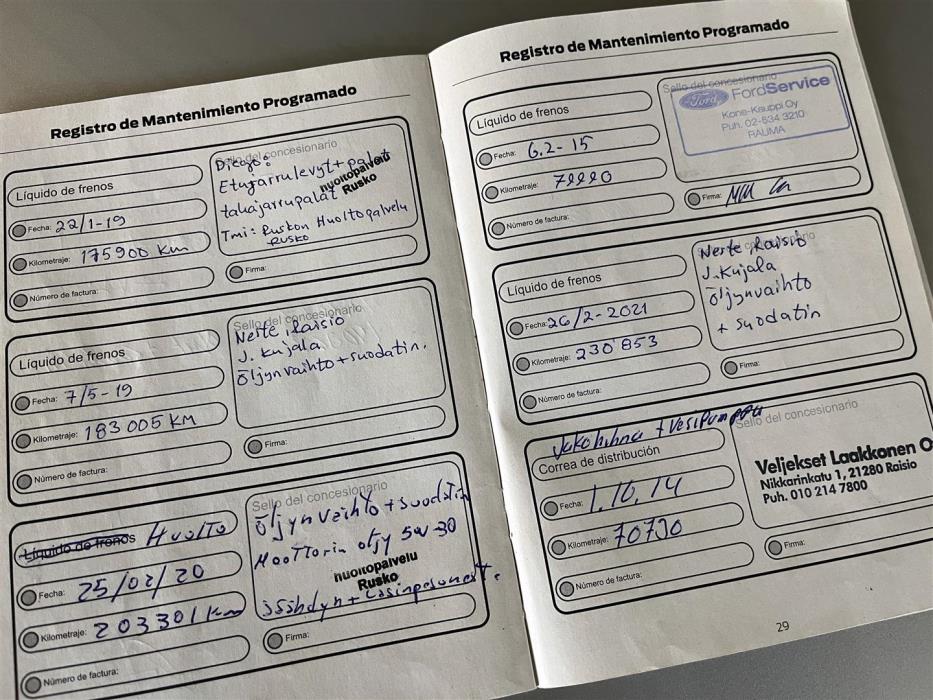 Registro de Mantenimiento Programado
Líquido de frenos
Fecha: 22/1-19
Kilometraje: 175900 Km
Número de factura:
Sello del concesionario
Etujarrulevyt + palat
takajarrupalat
huoltopalvelu
Rusko
Tmi: Ruskon Huoltopalvelu
Rusko
Firma:
Líquido de frenos
Fecha: 7/5-19
Kilometraje: 183 005 KM
Número de factura:
Sello del concesionario
Neste, Raisio
J. Kujala
öljynvaihto + suodatin.
Firma:
Líquido de frenos Huolto
Fecha: 25/02/20
Kilometraje: 203301 km
Número de factura:
Sello del concesionario
öljynvaihto + suodatin
Moottorin öljy 5W-30
huoltopalvelu
Rusko
Firma:
Registro de Mantenimiento Programado
Líquido de frenos
Fecha: 6.2-15
Kilometraje:
Número de factura:
Sello del concesionario
Ford FordService
Kone-Kauppi Oy
Puh. 02-534 3210
RAUMA
Firma:
Líquido de frenos
Fecha: 26/2-2021
Kilometraje: 230'853
Número de factura:
Sello del concesionario
Neste, Raisio
J. Kujala
öljynvaihto
+ suodatin
Firma:
Jakohihna + Vesipumppu
Correa de distribución
Fecha: 1.10.14
Kilometraje: 70730
Número de factura:
Sello del concesionario
Veljekset Laakkonen O
Nikkarinkatu 1, 21280 Raisio
Puh. 010 214 7800
Firma:
29